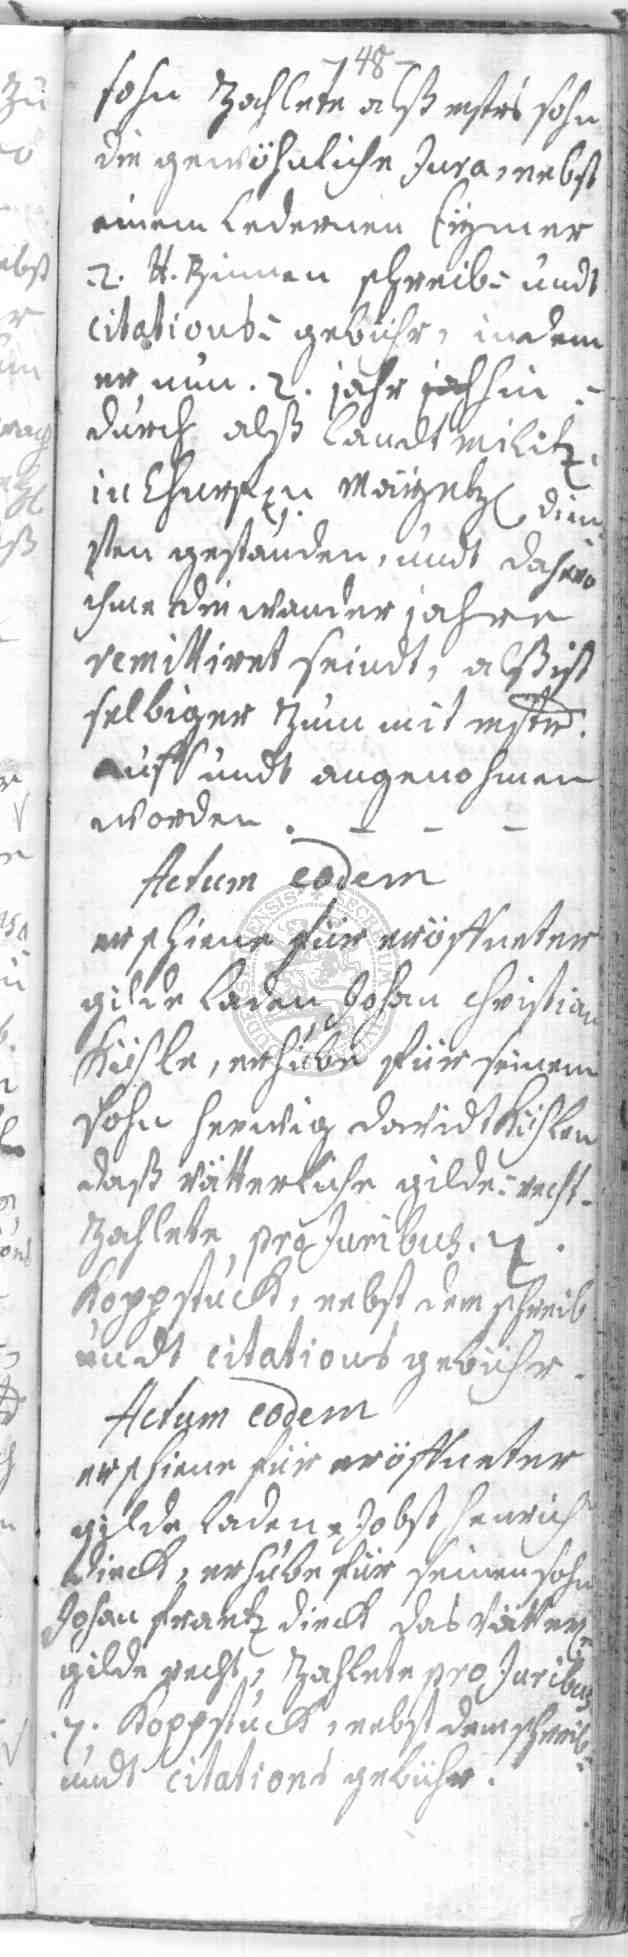 -48-
sohn Zahlete alß mstrs sohn
die gewöhnliche Jura, nebst
einem Ledernen Eymer
2. tt. Zinnen schreib- undt
citations- gebühr, indem
er nun .2. jahr hin-
durch alß Landtmilitz
in Churfr. Mayntz. dien-
sten gestanden, undt dahero
ihme die wander jahre
remittiret seindt, alß ist
selbiger Zum mit mstr.
auff undt angenohmen
worden. - - -
Actum eodem
erschiene für eröffneter
gilde Laden Johan Christian
Kühle, erhübe für seinem
Sohn Herwig Davidt Kühlen
daß vätterliche gilde-recht-
Zahlete pro Juribus. 7.
Koppstück, nebst dem schreib
undt citations gebühr.
Actum eodem
erschiene für eröffneter
gilde Laden Jobst Henrich
Dieck, erhübe für seinen sohn
Johan Frantz Dieck das vätterl.
gilde recht, Zahlete pro Juribus
.7. Koppstück, nebst dem schreib-
undt citations gebühr.